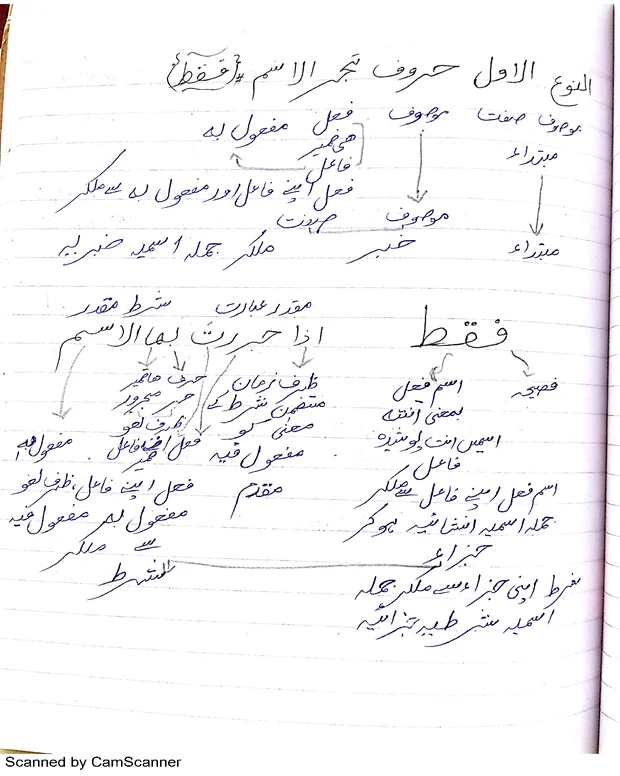 النوع الاول حروف تجر الاسم {فقط}
موصوف صفت موصوف فعل مفعول به
مبتداء ھی ضمیر
فاعل
فعل اپنے فاعل اور مفعول بہ سے ملکر
موصوف صفت
مبتداء خبر ملکر جملہ اسمیہ خبریہ
مقدر عبارت شرط مقدر
فقط اذا جررت بها الاسم
فصیحہ اسم فعل
بمعنی انتہ
اسمیں انت پوشیدہ
فاعل
اسم فعل اپنے فاعل سے ملکر
جملہ اسمیہ انشائیہ ہوکر
جزاء
ظرف زمان
متضمن شرط کے
معنی کو
مفعول فیہ
مقدم
حرف ھا ضمیر
جر مجرور
ظرف لغو
فعل فاعل
مفعول بہ
فعل اپنے فاعل، ظرف لغو
مفعول بہ مفعول فیہ
سے ملکر
شرط
شرط اپنی جزاء سے ملکر جملہ
اسمیہ شرطیہ جزائیہ
Scanned by CamScanner